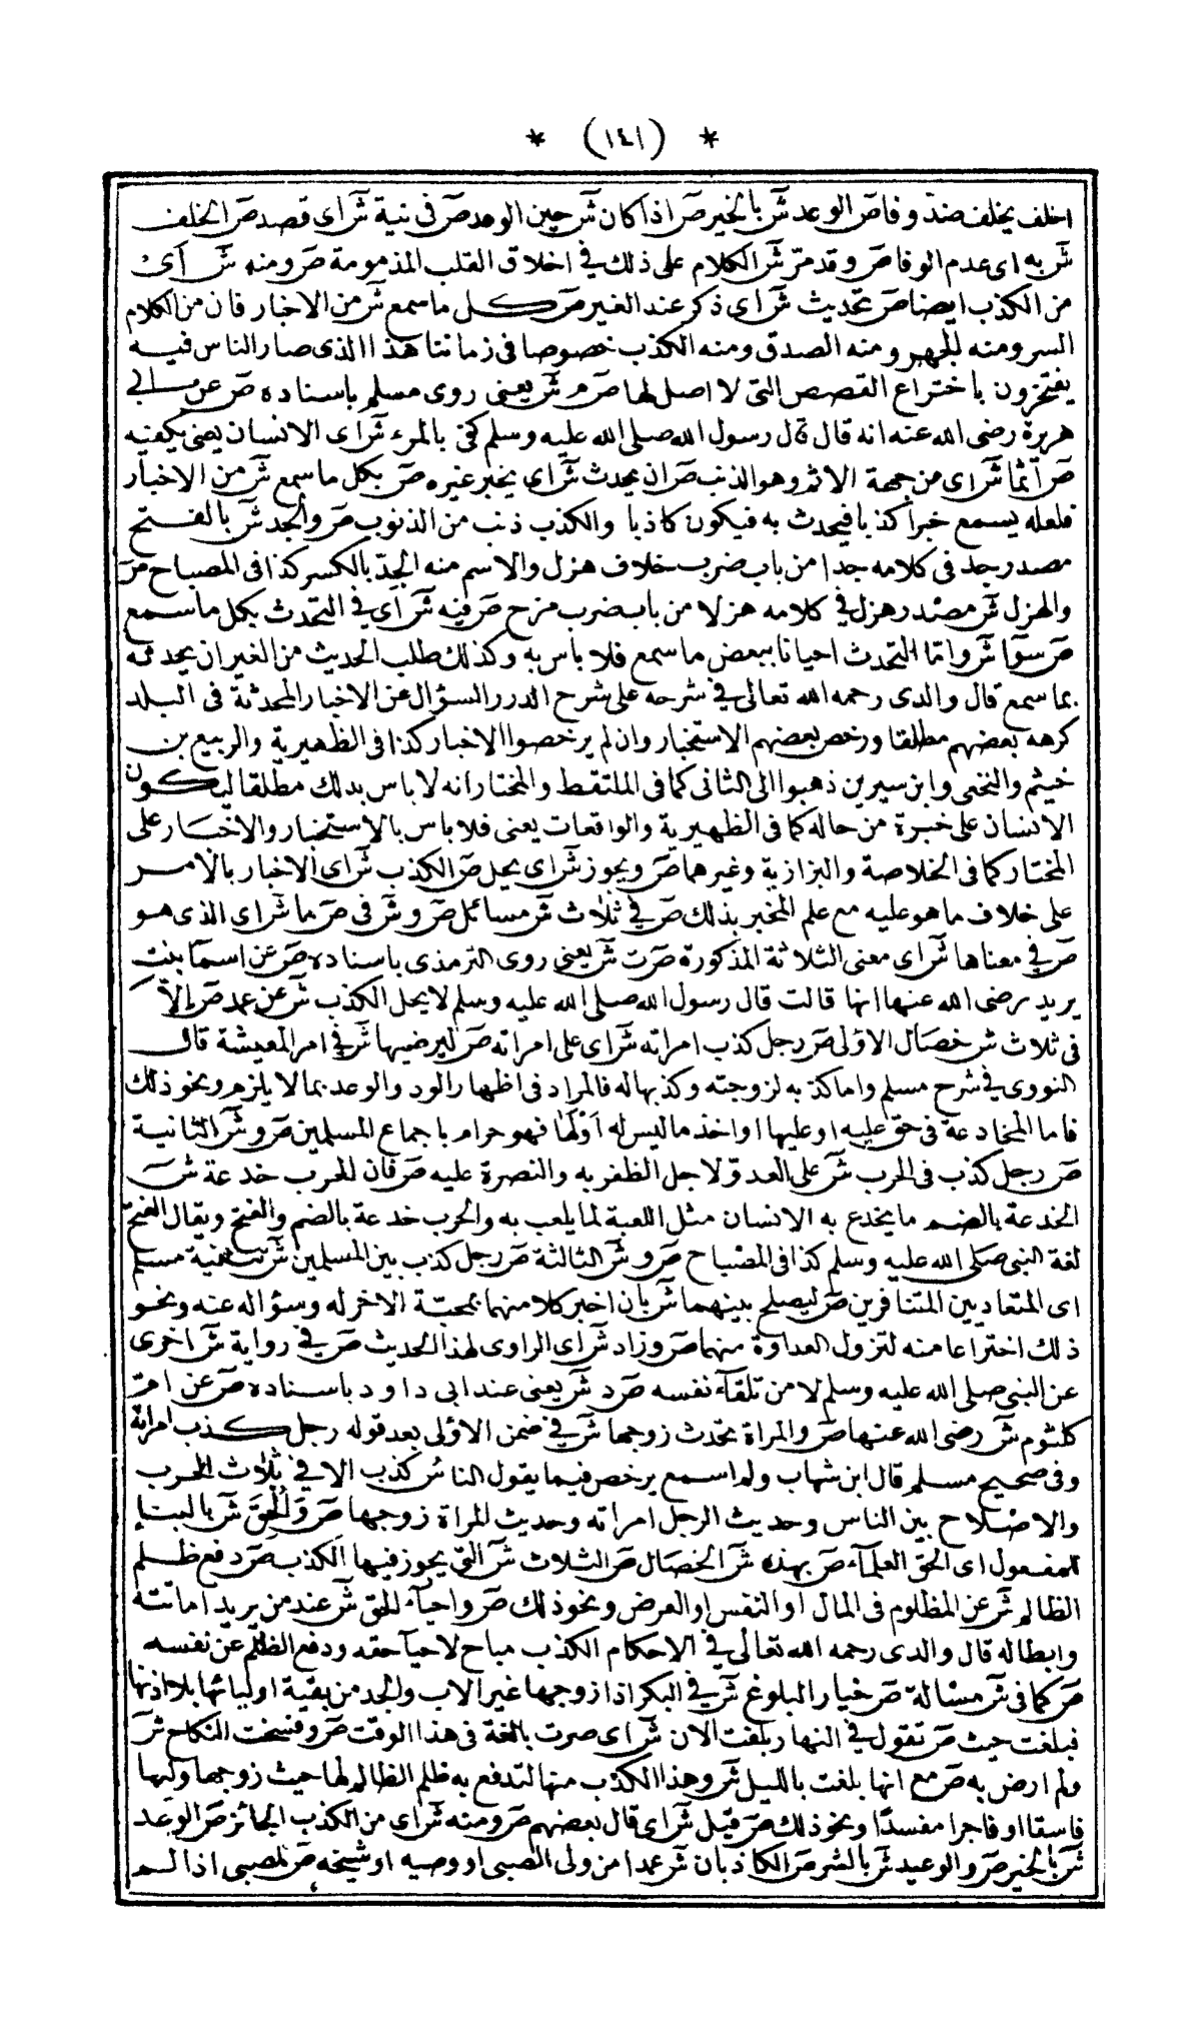 * (١٤١) *
اخلف يخلف ضد وفا ص الوعد ش بالخير ص اذا كان ش حين الوعد ص فى نية ش اى قصد ص الخلف
ش به اى عدم الوفا ص و قد مر ش الكلام على ذلك فى اخلاق القلب المذمومة ص ومنه ش اى
من الكذب ايضا ص تحديث ش اى ذكر عند الغير ص كل ما سمع ش من الاخبار فان من الكلام
السر ومنه للجهر ومنه الصدق ومنه الكذب خصوصا فى زماننا هذا الذى صار الناس فيه
يفتخرون باختراع القصص التى لا اصل لها ص م ش يعنى روى مسلم باسناده ص عن ابى
هريرة رضى الله عنه انه قال قال رسول الله صلى الله عليه وسلم كفى بالمرء ش اى الانسان يعنى يكفيه
ص اثما ش اى من جهة الاثم وهو الذنب ص ان يحدث ش اى يخبر غيره ص بكل ما سمع ش من الاخبار
فلعله يسمع خبرا كذبا فيحدث به فيكون كاذبا والكذب ذنب من الذنوب ص والجد ش بالفتح
مصدر جد فى كلامه جدا من باب ضرب خلاف هزل والاسم منه الجد بالكسر كذا فى المصباح ص
والهزل ش مصدر هزل فى كلامه هزلا من باب ضرب مزح ص فيه ش اى فى التحدث بكل ما سمع
ص سوا ش واما التحدث احيانا ببعض ما سمع فلا باس به وكذلك طلب الحديث من الغير ان يحدثه
بما سمع قال والدى رحمه الله تعالى فى شرحه على شرح الدرر السؤال عن الاخبار المحدثة فى البلد
كرهه بعضهم مطلقا ورخص بعضهم الاستخبار وان لم يرخصوا الاخبار كذا فى الظهيرية والربيع بن
خيثم والنخعى وابن سيرين ذهبوا الى الثانى كما فى الملتقط والمختار انه لا باس بذلك مطلقا ليكون
الانسان على خبرة من حاله كما فى الظهيرية والواقعات يعنى فلا باس بالاستخبار والاخبار على
المختار كما فى الخلاصة والبزازية وغيرهما ص ويجوز ش اى يحل ص الكذب ش اى الاخبار بالامر
على خلاف ما هو عليه مع علم المخبر بذلك ص فى ثلاث ش مسائل ص و ش فى ص ما ش اى الذى هو
ص فى معناها ش اى معنى الثلاثة المذكورة ص ت ش يعنى روى الترمذى باسناده ص عن اسما بنت
يريد رضى الله عنها انها قالت قال رسول الله صلى الله عليه وسلم لا يحل الكذب ش عن عمد ص الا
فى ثلاث ش خصال الاولى ص رجل كذب امراته ش اى على امراته ص ليرضيها ش فى امر المعيشة قال
النووى فى شرح مسلم واما كذبه لزوجته وكذبها له فالمراد فى اظهار الود والوعد بما لا يلزم ونحو ذلك
فاما المخادعة فى حق عليه او عليها او اخذ ما ليس له او لها فهو حرام باجماع المسلمين ص و ش الثانية
ص رجل كذب فى الحرب ش على العدو لاجل الظفر به والنصرة عليه ص فان للحرب خدعة ش
الخدعة بالضم ما يخدع به الانسان مثل اللعبة لما يلعب به والحرب خدعة بالضم والفتح ويقال الفتح
لغة النبى صلى الله عليه وسلم كذا فى المصباح ص و ش الثالثة ص رجل كذب بين المسلمين ش تثنية مسلم
اى المتعاديين المتنافرين ص ليصلح بينهما ش بان اخبر كلا منهما بمحبة الاخر له وسؤاله عنه ونحو
ذلك اختراعا منه لتزول العداوة منهما ص وزاد ش اى الراوى لهذا الحديث ص فى رواية ش اخرى
عن النبى صلى الله عليه وسلم لا من تلقآء نفسه ص د ش يعنى عند ابى داود باسناده ص عن ام
كلثوم ش رضى الله عنها ص والمراة تحدث زوجها ش فى ضمن الاولى بعد قوله رجل كذب امراته
وفى صحيح مسلم قال ابن شهاب ولم اسمع يرخص فيما يقول الناس كذب الا فى ثلاث الحرب
والاصلاح بين الناس وحديث الرجل امراته وحديث المراة زوجها ص والحق ش بالبنا
للمفعول اى الحق العلمآء ص بهذه ش الخصال ص الثلاث ش التى يجوز فيها الكذب ص دفع ظلم
الظالم ش عن المظلوم فى المال او النفس او العرض ونحو ذلك ص واحيآء للحق ش عند من يريد اماتته
وابطاله قال والدى رحمه الله تعالى فى الاحكام الكذب مباح لاحيآ حقه ودفع الظلم عن نفسه
ص كما فى ش مسئالة ص خيار البلوغ ش فى البكر اذا زوجها غير الاب والجد من بقية اوليائها بلا اذنها
فبلغت حيث ص تقول فى النهار بلغت الان ش اى صرت بالغة فى هذا الوقت ص وفسخت النكاح ش
ولم ارض به ص مع انها بلغت بالليل ش وهذا الكذب منها لتدفع به ظلم الظالم لها حيث زوجها وليها
فاسقا او فاجرا مفسدا ونحو ذلك ص قيل ش اى قال بعضهم ص ومنه ش اى من الكذب الجائز ص الوعد
ش بالخير ص والوعيد ش بالشر ص الكاذبان ش عمدا من ولى الصبى او وصيه او شيخه ص للصبى اذا لم